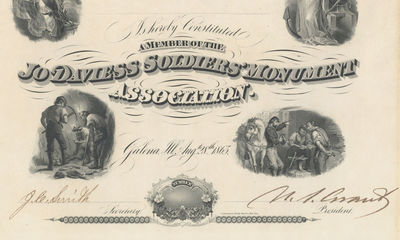 Is hereby Constituted
A MEMBER OF THE
JO DAVIESS SOLDIERS' MONUMENT
ASSOCIATION.
Galena, Ill. Aug. 18th 1865
J.C. Smith
U. S. Grant
Secretary
President.